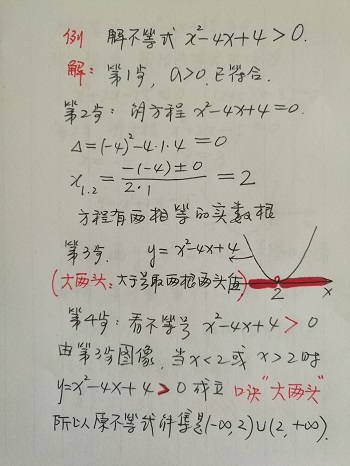 例 解不等式 x²-4x+4>0.
解: 第1步, a>0. 已符合.
第2步: 解方程 x²-4x+4=0.
Δ=(-4)²-4·1·4=0
x₁.₂ = (-(-4)±0)/(2·1) = 2
方程有两相等的实数根
第3步. y=x²-4x+4
(大两头: 大于号取两根两头值)
2 x
第4步: 看不等号 x²-4x+4 > 0
由第3步图像, 当 x<2 或 x>2 时
y=x²-4x+4 > 0 成立 口诀"大两头"
所以原不等式解集是(-∞,2)∪(2,+∞).